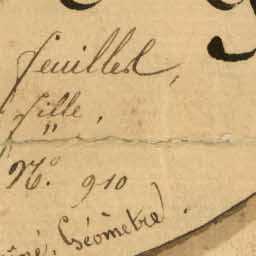 feuillet,
fille,
"
N°. 910
Géomètre.